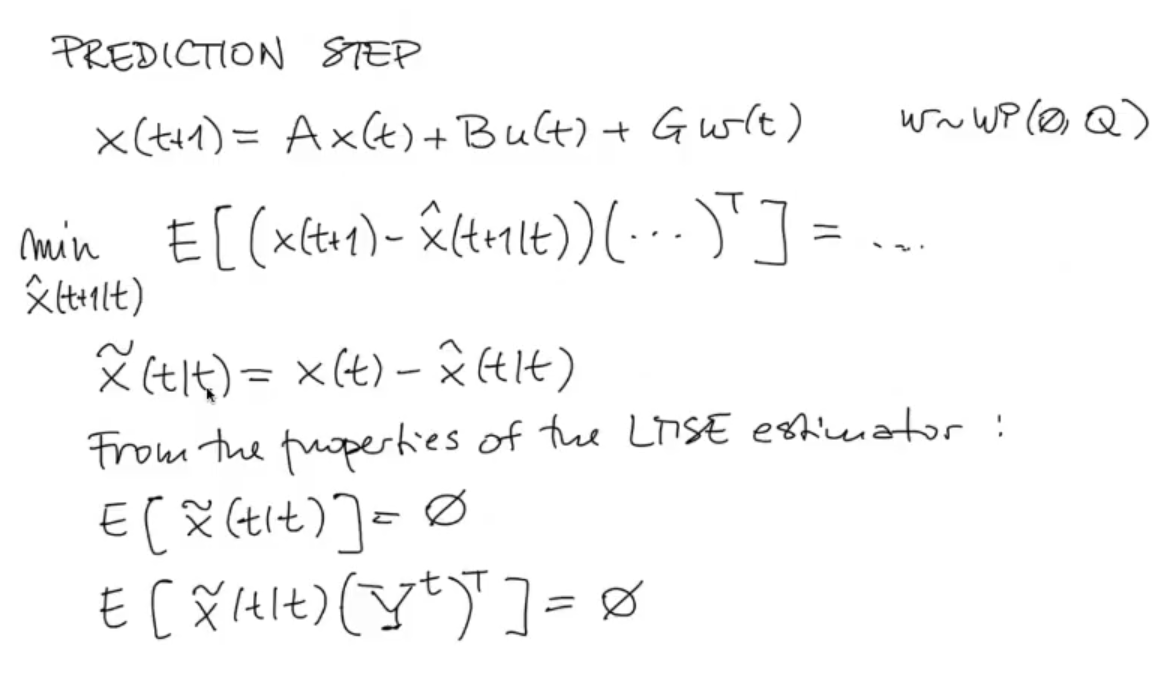 PREDICTION STEP
x(t+1) = Ax(t) + Bu(t) + Gw(t) w~WP(∅, Q)
min E[(x(t+1) - x̂(t+1|t))(...)ᵀ] = ....
x̂(t+1|t)
x̃(t|t) = x(t) - x̂(t|t)
From the properties of the LMSE estimator :
E[x̃(t|t)] = ∅
E[x̃(t|t)(Yᵗ)ᵀ] = ∅